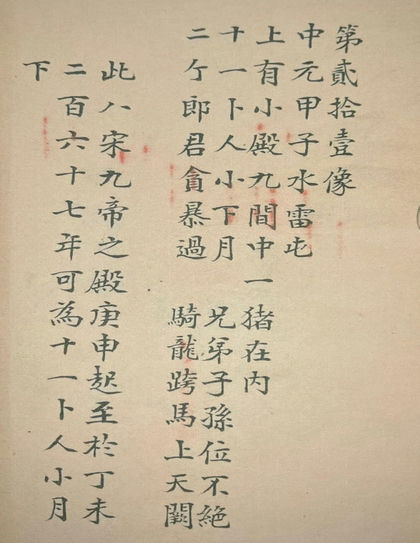 第貳拾壹像
中元甲子水雷屯
上有小殿九間中一猪在内
十一卜人小下月 兄弟子孫位不絕
二亇郎君貪暴過 騎龍跨馬上天闕
此八宋九帝之殿庚申起至於丁未
二百六十七年可為十一卜人小月
下